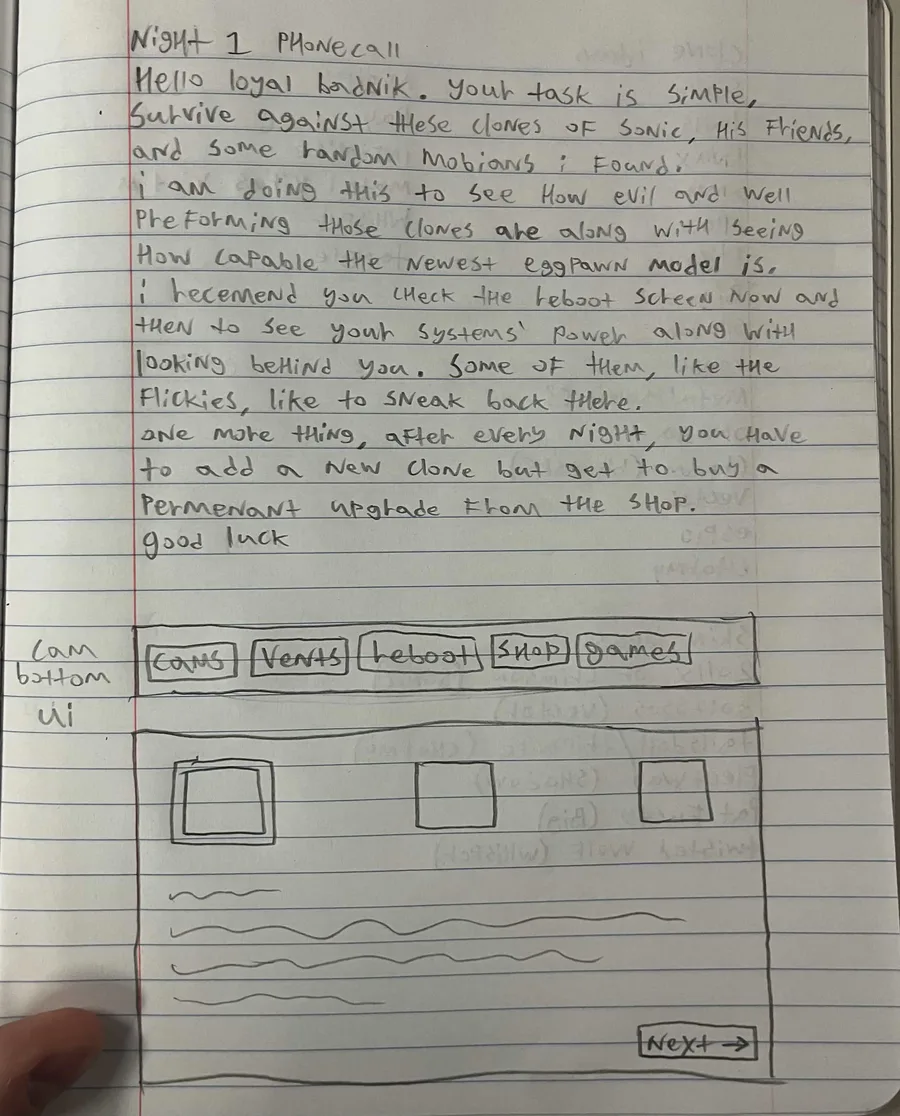 Night 1 Phonecall
Hello loyal badnik. your task is simple,
survive against these clones of sonic, his friends,
and some random mobians i found.
i am doing this to see how evil and well
preforming those clones are along with seeing
how capable the newest eggpawn model is.
i recemend you check the reboot screen now and
then to see your systems' power along with
looking behind you. some of them, like the
flickies, like to sneak back there.
one more thing, after every night, you have
to add a new clone but get to buy a
permenant upgrade from the shop.
good luck
cam bottom ui
cams vents reboot shop games
Next →